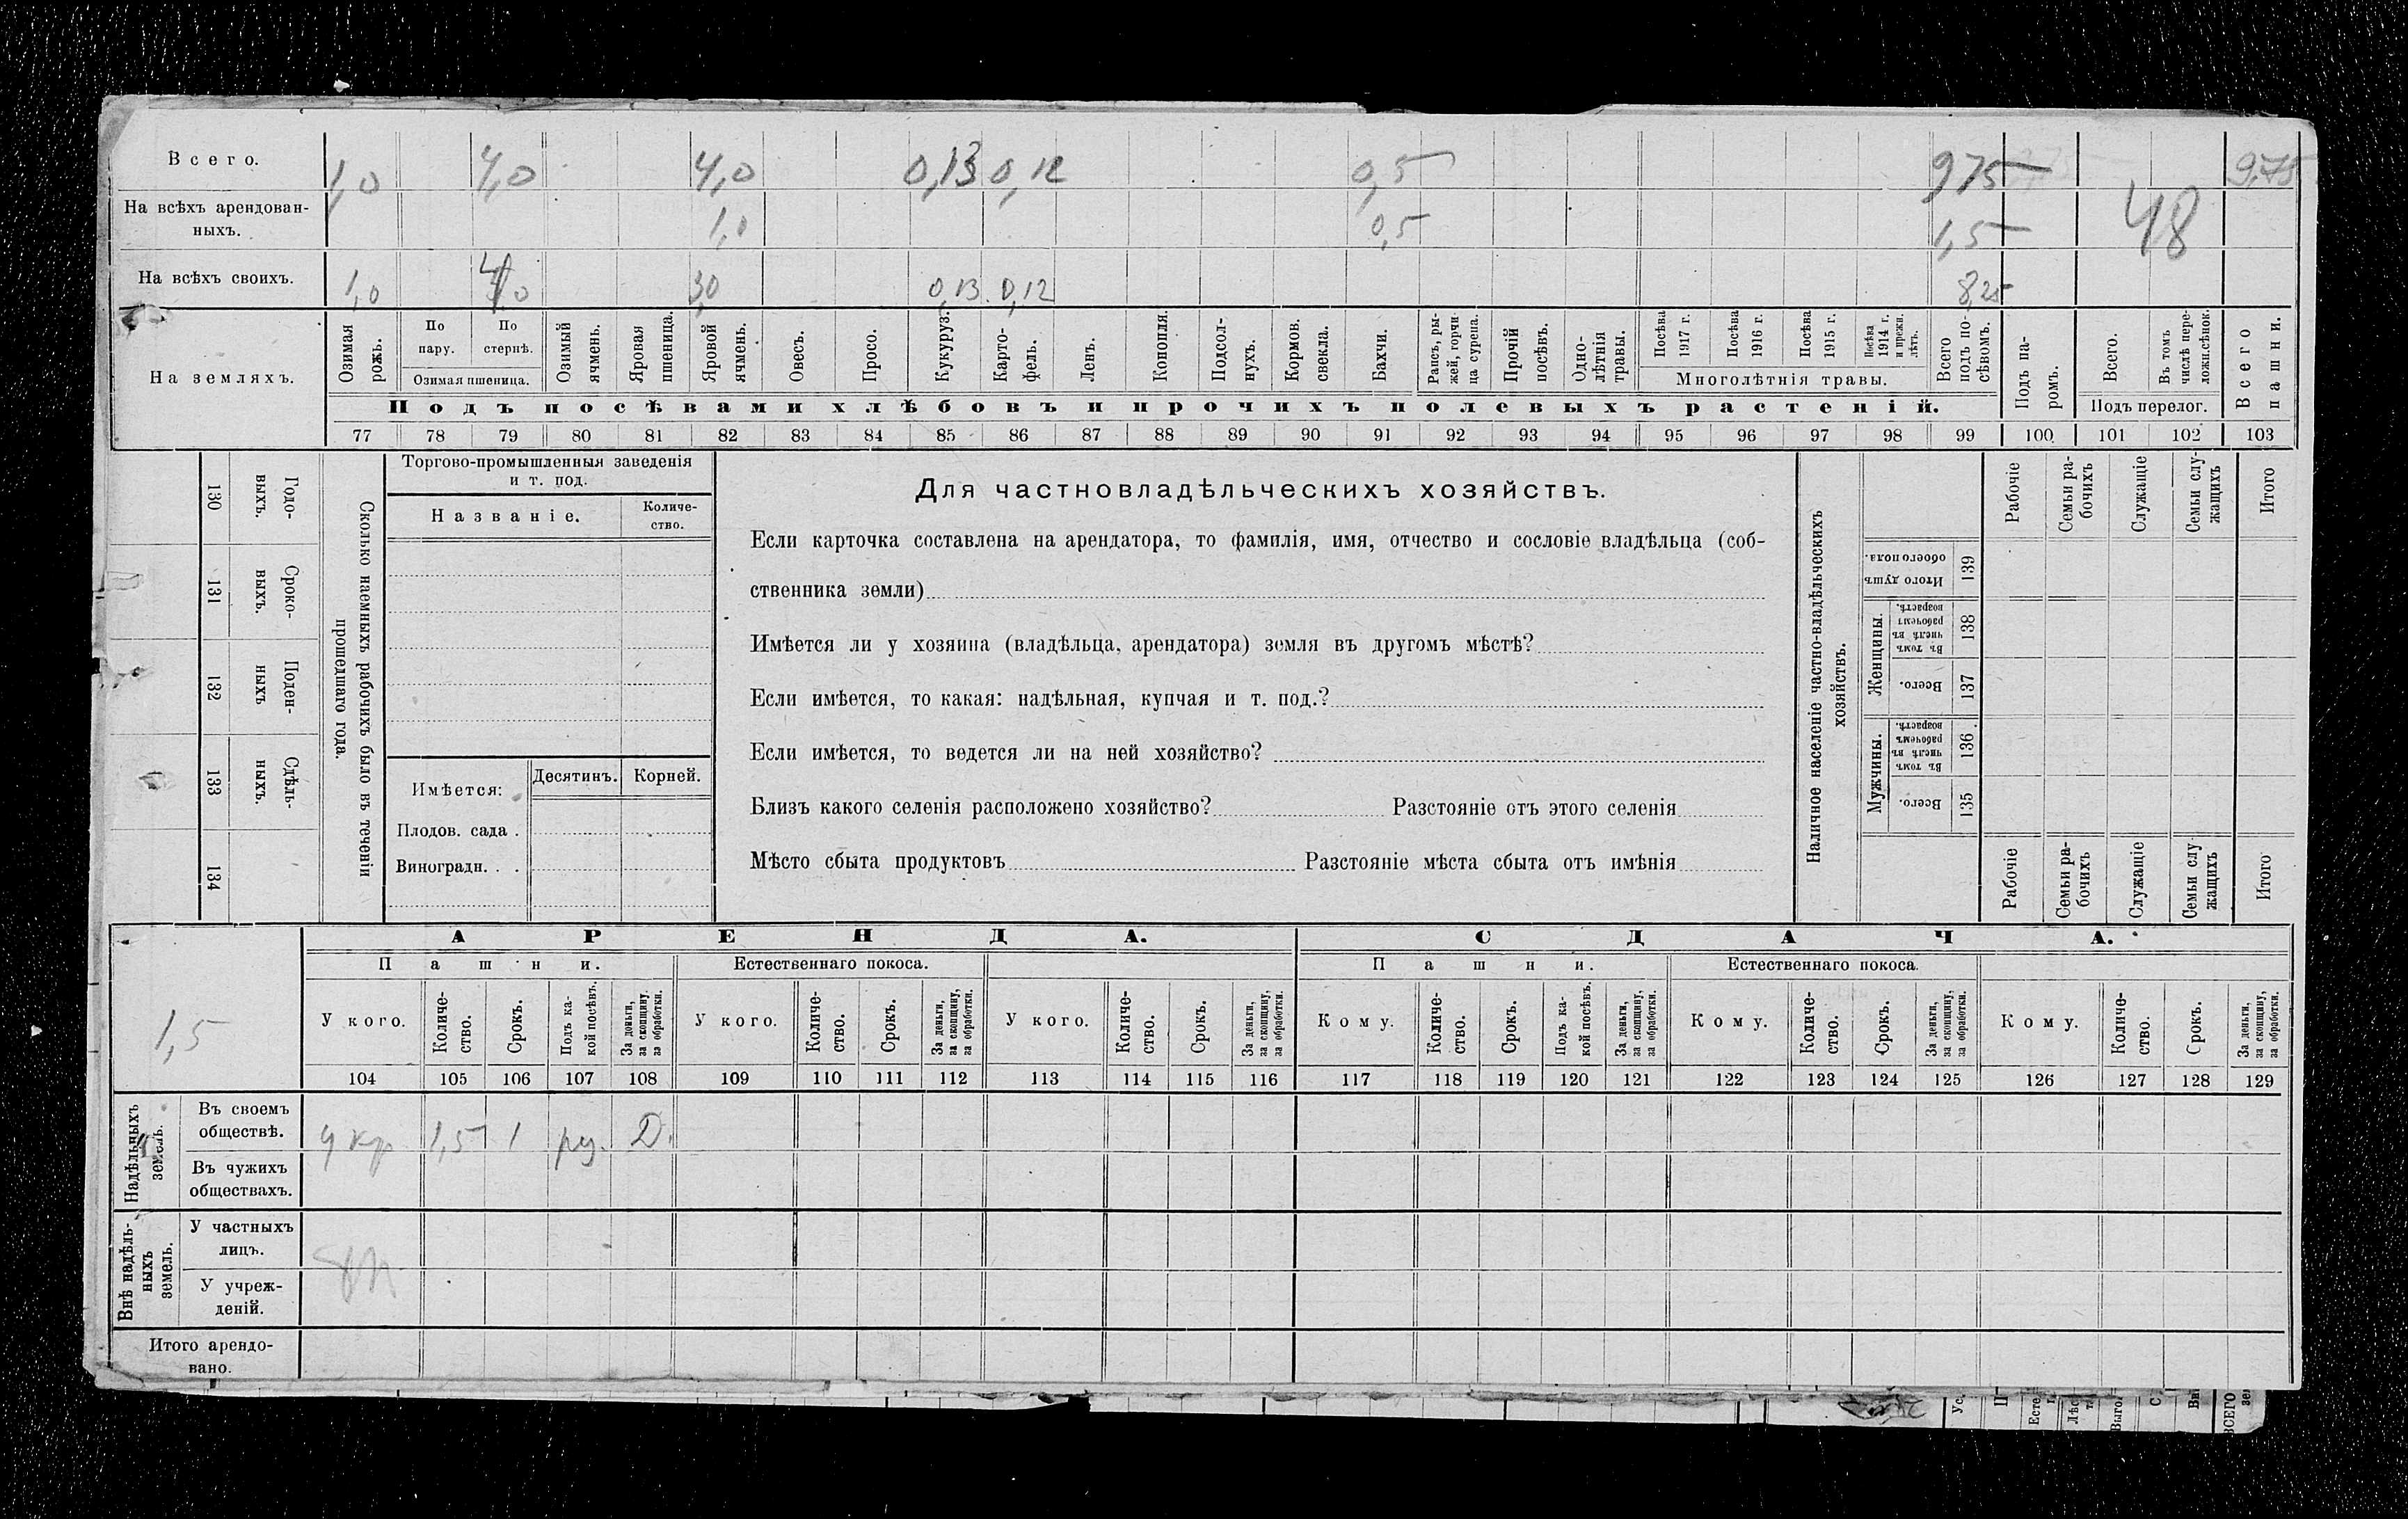 Всего. 1,0 4,0 4,0 0,13 0,12 0,5 975 9,75
На всѣхъ арендован-
ныхъ. 1,0 0,5 1,5 48
На всѣхъ своихъ. 1,0 3,0 0,13 0,12 8,25
На земляхъ.
Озимая рожь.
По пару.
По стернѣ.
Озимая пшеница.
Озимый ячмень.
Яровая пшеница.
Яровой ячмень.
Овесъ.
Просо.
Кукуруз.
Карто-
фель.
Ленъ.
Конопля.
Подсол-
нухъ.
Кормов.
свекла.
Бахчи.
Рапсъ, ры-
жей, горчи-
ца сурепа.
Прочій
посѣвъ.
Одно-
лѣтнія
травы.
Посѣва
1917 г.
Посѣва
1916 г.
Посѣва
1915 г.
Посѣва
1914 г.
и прежн.
лѣтъ.
Многолѣтнія травы.
Всего
подъ по-
сѣвомъ.
Подъ па-
ромъ.
Всего.
Въ томъ
числѣ пере-
ложн.сѣнок.
Подъ перелог.
Всего
пашни.
Подъ посѣвами хлѣбовъ и прочихъ полевыхъ растеній.
77 78 79 80 81 82 83 84 85 86 87 88 89 90 91 92 93 94 95 96 97 98 99 100 101 102 103
130 Годо-
выхъ.
131 Сроко-
выхъ.
132 Поден-
ныхъ
133 Сдѣль-
ныхъ.
134
Сколько наемныхъ рабочихъ было въ теченіи
прошедшаго года.
Торгово-промышленныя заведенія
и т. под.
Названіе.
Количе-
ство.
Имѣется:
Десятинъ.
Корней.
Плодов. сада .
Виноградн. . .
Для частновладѣльческихъ хозяйствъ.
Если карточка составлена на арендатора, то фамилія, имя, отчество и сословіе владѣльца (соб-
ственника земли)
Имѣется ли у хозяина (владѣльца, арендатора) земля въ другомъ мѣстѣ?
Если имѣется, то какая: надѣльная, купчая и т. под.?
Если имѣется, то ведется ли на ней хозяйство?
Близъ какого селенія расположено хозяйство? Разстояніе отъ этого селенія
Мѣсто сбыта продуктовъ Разстояніе мѣста сбыта отъ имѣнія
Наличное населеніе частно-владѣльческихъ
хозяйствъ.
Рабочіе
Семьи ра-
бочихъ
Служащіе
Семьи слу-
жащихъ
Итого
Итого душъ
обоего пола.
139
Женщины.
Въ томъ
числѣ въ
рабочемъ
возрастѣ.
138
Всего.
137
Мужчины.
Въ томъ
числѣ въ
рабочемъ
возрастѣ.
136
Всего.
135
Рабочіе
Семьи ра-
бочихъ
Служащіе
Семьи слу
жащихъ
Итого
1,5
АРЕНДА.
СДАЧА.
Пашни.
Естественнаго покоса.
Пашни.
Естественнаго покоса.
У кого.
Количе-
ство.
Срокъ.
Подъ ка-
кой посѣвъ.
За деньги,
за скопщину,
за обработки.
У кого.
Количе-
ство.
Срокъ.
За деньги,
за скопщину,
за обработки.
У кого.
Количе-
ство.
Срокъ.
За деньги,
за скопщину,
за обработки.
Кому.
Количе-
ство.
Срокъ.
Подъ ка-
кой посѣвъ.
За деньги,
за скопщину,
за обработки.
Кому.
Количе-
ство.
Срокъ.
За деньги,
за скопщину,
за обработки.
Кому.
Количе-
ство.
Срокъ.
За деньги,
за скопщину,
за обработки.
104 105 106 107 108 109 110 111 112 113 114 115 116 117 118 119 120 121 122 123 124 125 126 127 128 129
Надѣльныхъ
земель.
Въ своемъ
обществѣ.
у кр 1,5 1 Д.
Въ чужихъ
обществахъ.
Внѣ надѣль-
ныхъ
земель.
У частныхъ
лицъ.
У учреж-
деній.
Итого арендо-
вано.